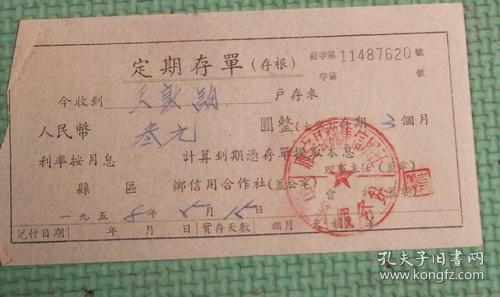 定期存單(存根)
蘇字第11487620號
字第 號
今收到 戶存來
人民幣 叁元 圓整 存期 3 個月
利率按月息 計算到期憑存單提取本息
縣 區 鄉信用合作社(蓋公章)
理事主任(蓋章)
會計
一九五8年5月15日
兌付日期 年 月 日 實存天數 個月
服务站
孔夫子旧书网
www.kongfz.com